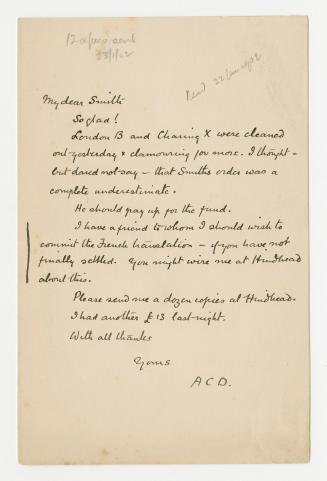 12 copies sent
23/1/02
Recd 22 Jan 1902
My dear Smith
So glad!
London B and Charing X were cleaned
out yesterday & clamouring for more. I thought -
but dared not say - that Smiths order was a
complete underestimate.
He should pay up for the fund.
I have a friend to whom I should wish to
commit the French translation - if you have not
finally settled. You might wire me at Hindhead
about this.
Please send me a dozen copies at Hindhead.
I had another £13 last night.
With all thanks
Yours
A C D.